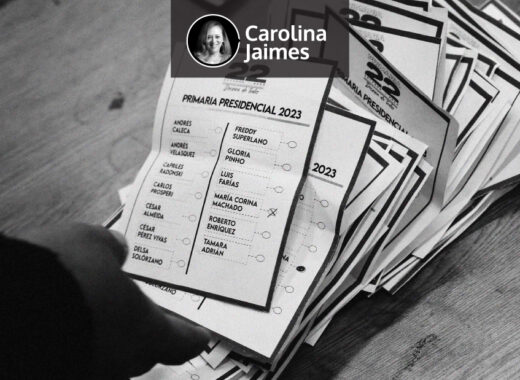 Carolina
Jaimes
22
PRIMARIA PRESIDENCIAL 2023
ANDRÉS
CALECA
ANDRÉS
VELASQUEZ
CAPRILES
RADONSKI
CARLOS
PROSPERI
CÉSAR
ALMEIDA
CÉSAR
PÉREZ VIVAS
DELSA
SOLÓRZANO
FREDDY
SUPERLANO
GLORIA
PINHO
LUIS
FARÍAS
MARÍA CORINA
MACHADO
ROBERTO
ENRÍQUEZ
TAMARA
ADRIAN
2023
22
PRIMARIA PRESIDENCIAL
22